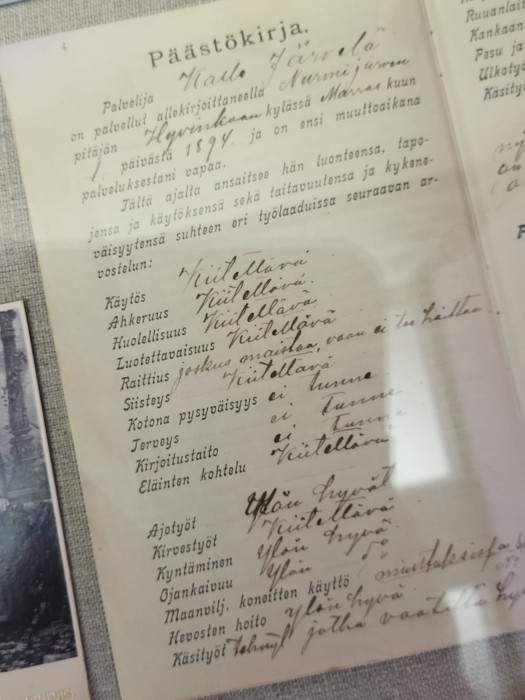 Päästökirja.
Palvelija Kalle Järvelä
on palvellut allekirjoittaneella Nurmijärven
pitäjän Hyvinkään kylässä Marras kuun
1 päivästä 1894 ja on ensi muuttoaikana
palveluksestani vapaa.
Tältä ajalta ansaitsee hän luonteensa, tapo-
jensa ja käytöksensä sekä taitavuutensa ja kykene-
väisyytensä suhteen eri työlaaduissa seuraavan ar-
vostelun:
Käytös Kiitettävä
Ahkeruus Kiitettävä.
Huolellisuus Kiitettävä
Luotettavaisuus Kiitettävä
Raittius joskus maistaa, vaan ei tee haittaa.
Siisteys Kiitettävä
Kotona pysyväisyys ei tunne
Terveys ei tunne
Kirjoitustaito ei tunne
Eläinten kohtelu Kiitettävä
Ajotyöt Ylön hyvät
Kirvestyöt Kiitettävä
Kyntäminen Ylön hyvä
Ojankaivuu Ylön
Maanvilj. koneitten käyttö
Hevosten hoito Ylön hyvä
Käsityöt jotka
Ruuanlait
Kankaan
Pesu ja
Ulkotyö
Käsityö